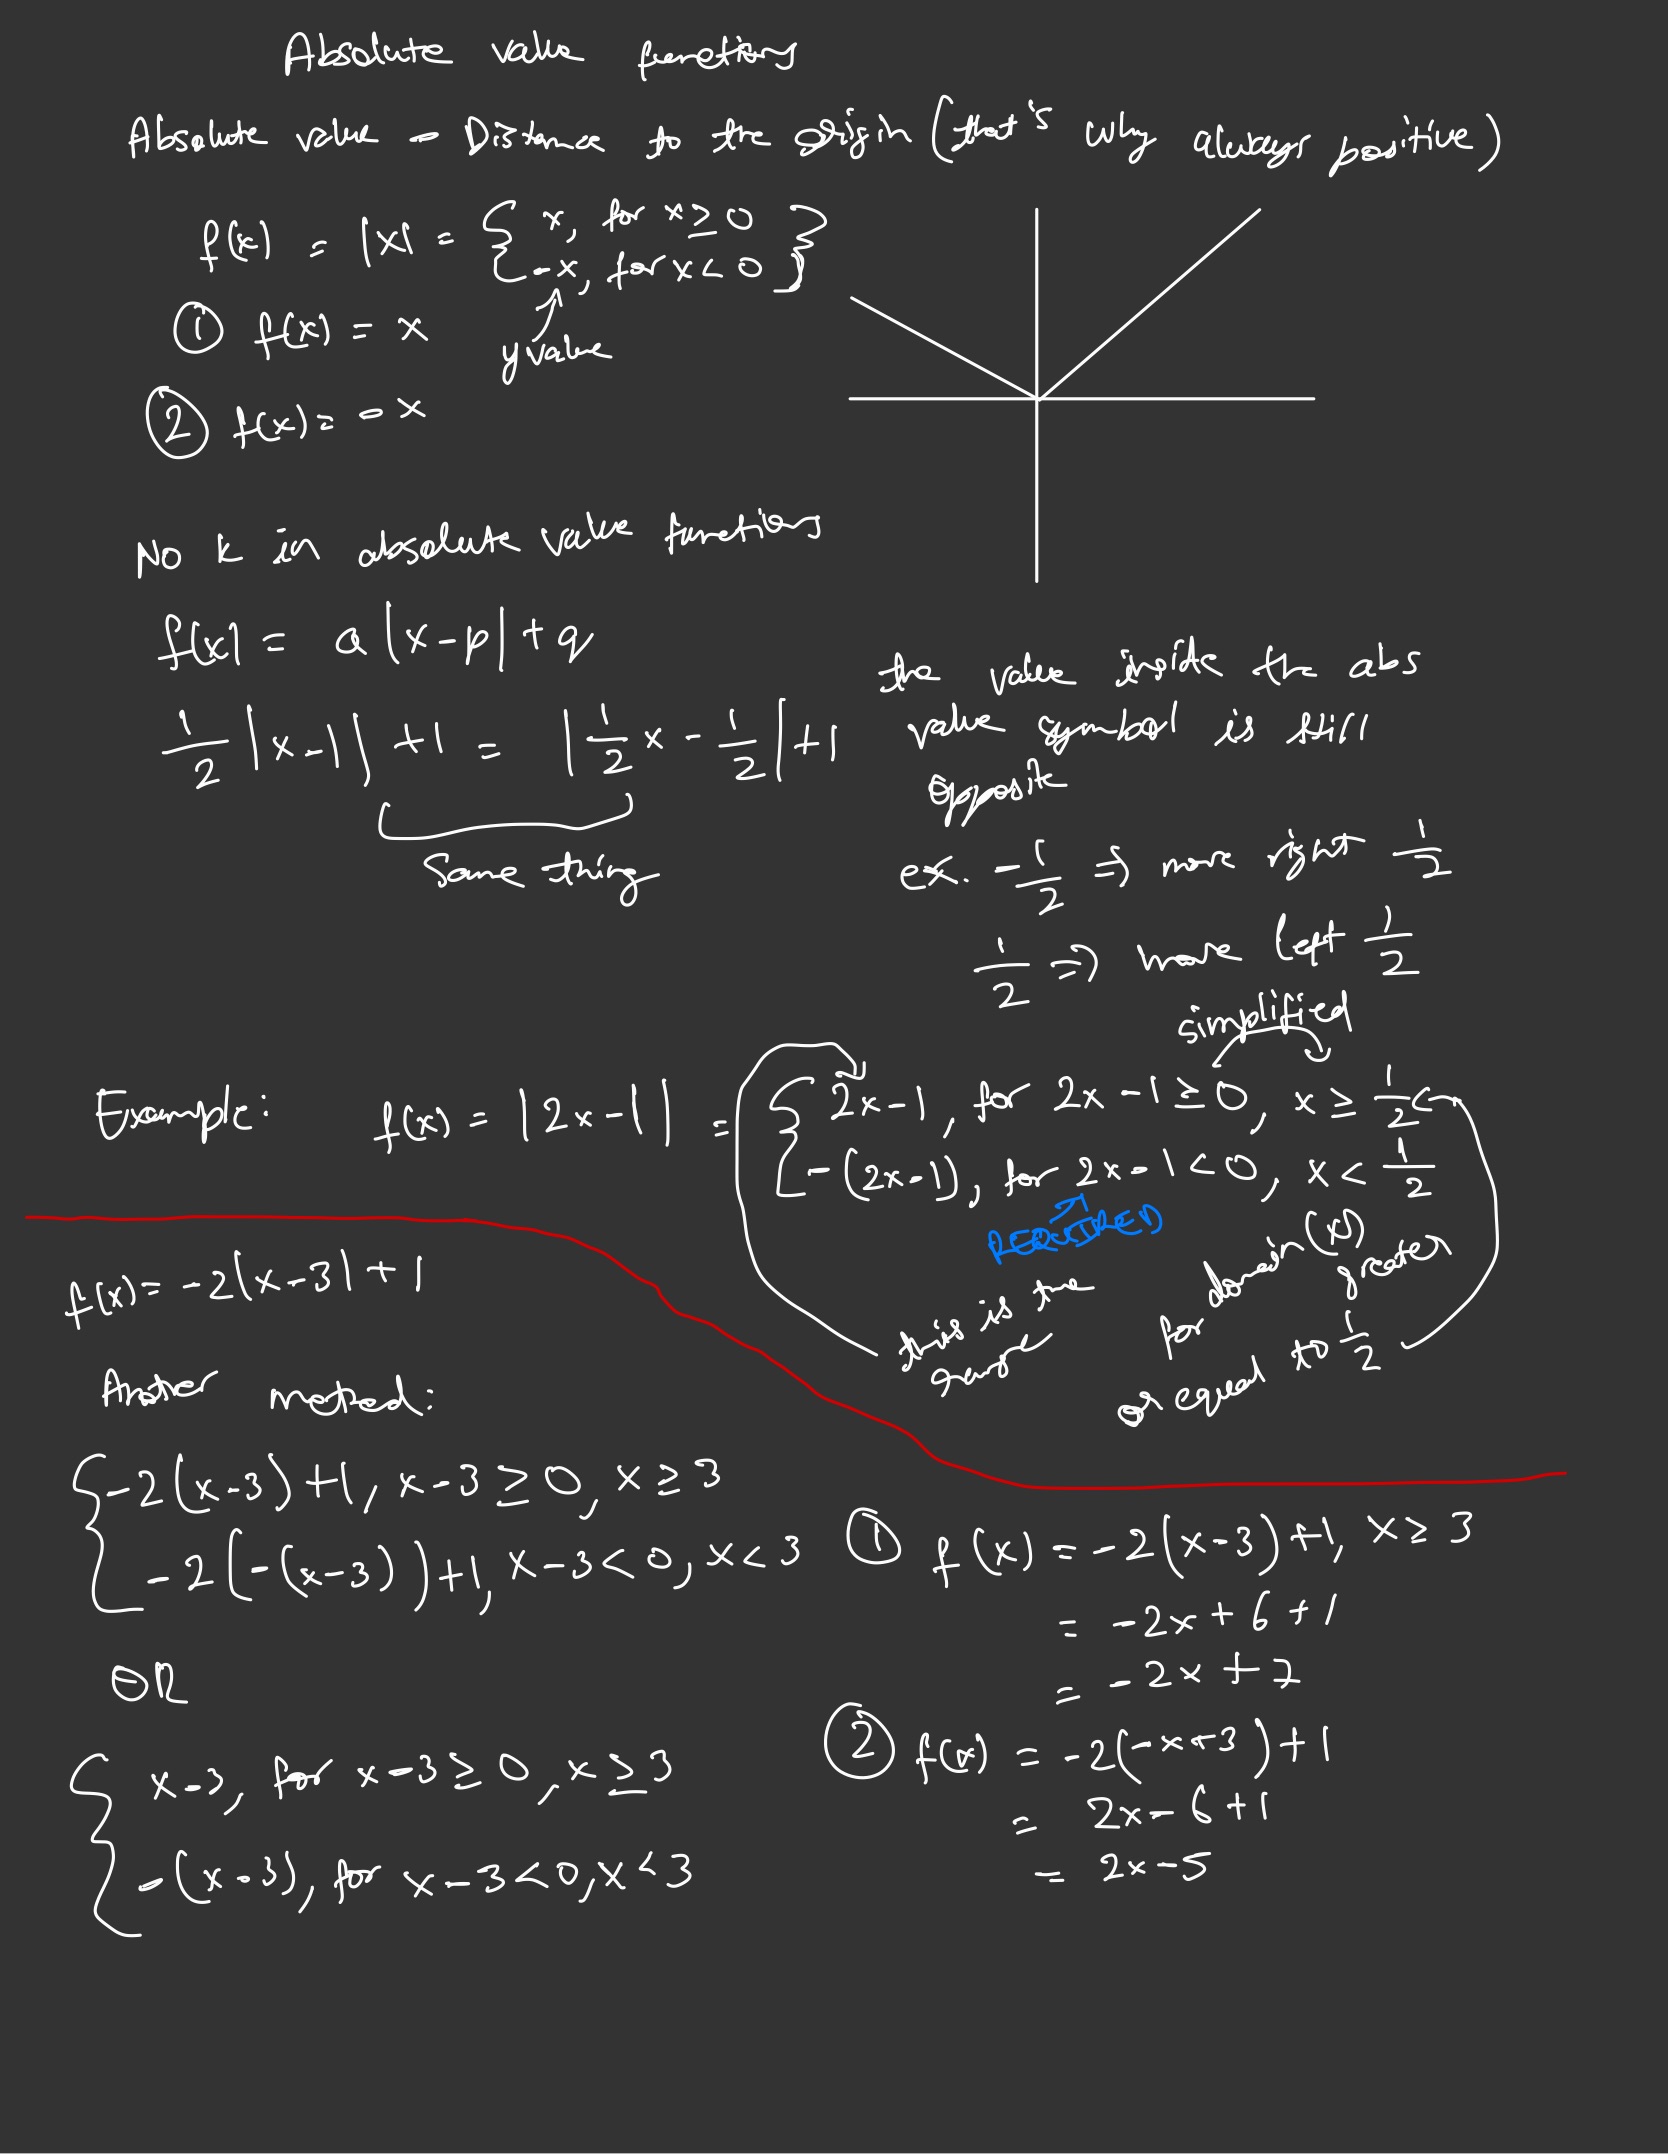 Absolute value functions
Absolute value - Distance to the origin (that's why always positive)
f(x) = |x| = { x, for x ≥ 0
-x, for x < 0 }
① f(x) = x
y value
② f(x) = -x
No k in absolute value functions
f(x) = a|x-p|+q
1/2 |x-1| +1 = |1/2 x - 1/2| +1
Same thing
the value inside the abs
value symbol is still
opposite
ex. -1/2 ⇒ move right 1/2
1/2 ⇒ move left 1/2
simplified
Example: f(x) = |2x-1| = { 2x-1, for 2x-1 ≥ 0, x ≥ 1/2
-(2x-1), for 2x-1 < 0, x < 1/2
REQUIRED
this is the
range
for domain (x)
greater
or equal to 1/2
f(x) = -2|x-3| + 1
Another method:
{ -2(x-3)+1, x-3 ≥ 0, x ≥ 3
-2(-(x-3))+1, x-3 < 0, x < 3
OR
{ x-3, for x-3 ≥ 0, x ≥ 3
-(x-3), for x-3 < 0, x < 3
① f(x) = -2(x-3)+1, x ≥ 3
= -2x + 6 + 1
= -2x + 7
② f(x) = -2(-x+3)+1
= 2x - 6 + 1
= 2x - 5